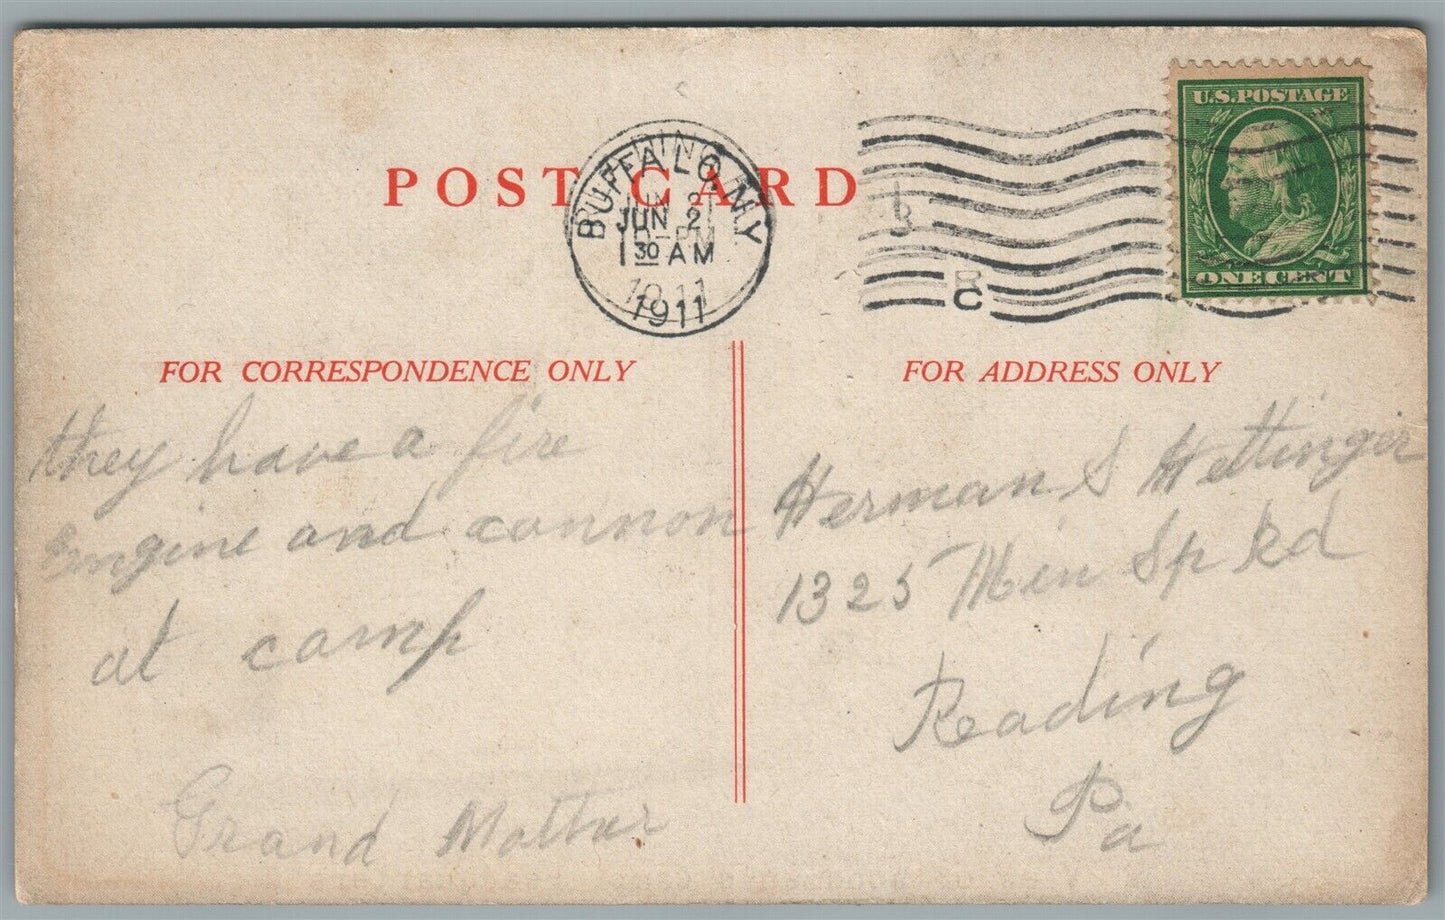 POST CARD
BUFFALO, N.Y.
JUN 2
1 30 AM
1911
C
U.S. POSTAGE
ONE CENT
FOR CORRESPONDENCE ONLY
they have a fire
Engine and cannon
at camp
Grand Mottur
FOR ADDRESS ONLY
Herman S Hettinger
1325 Min Sp Rd
Reading
Pa